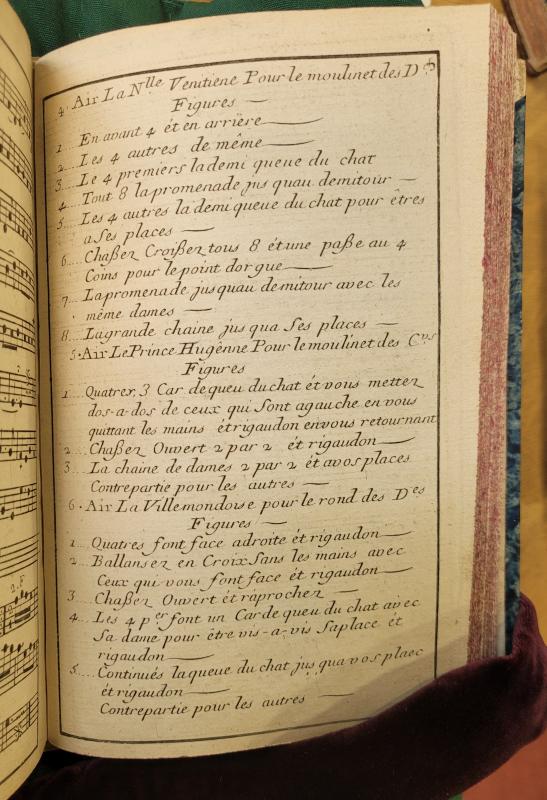 4. Air La Nlle Venitiene Pour le moulinet des Des
Figures
1. En avant 4 ét en arriere
2. Les 4 autres de même
3. Le 4 premiers la demi queue du chat
4. Tout 8 la promenade jus quau demitour
5. Les 4 autres la demi queue du chat pour êtres
a Ses places
6. Chaßez Croißez tous 8 ét une paße au 4
Coins pour le point dorgue
7. La promenade jusquau demitour avec les
même dames
8. La grande chaine jus qua Ses places
5. Air Le Prince Hugênne Pour le moulinet des Cvs
Figures
1. Quatrex 3 Car de queu du chat ét vous mettez
dos-a-dos de ceux qui Sont agauche en vous
quittant les mains ét rigaudon en vous retournant
2. Chaßez Ouvert 2 par 2 ét rigaudon
3. La chaine de dames 2 par 2 ét avos places
Contrepartie pour les autres
6. Air La Villemondoise pour le rond des Des
Figures
1. Quatres font face adroite ét rigaudon
2. Ballansez en Croix Sans les mains avec
Ceux qui vous font face ét rigaudon
3. Chaßez Ouvert ét raprochez
4. Les 4 per font un Car de queu du chat avec
Sa dame pour être vis-a-vis Saplace ét
rigaudon
5. Continués la queue du chat jus qua vos plaec
ét rigaudon
Contrepartie pour les autres
2. F